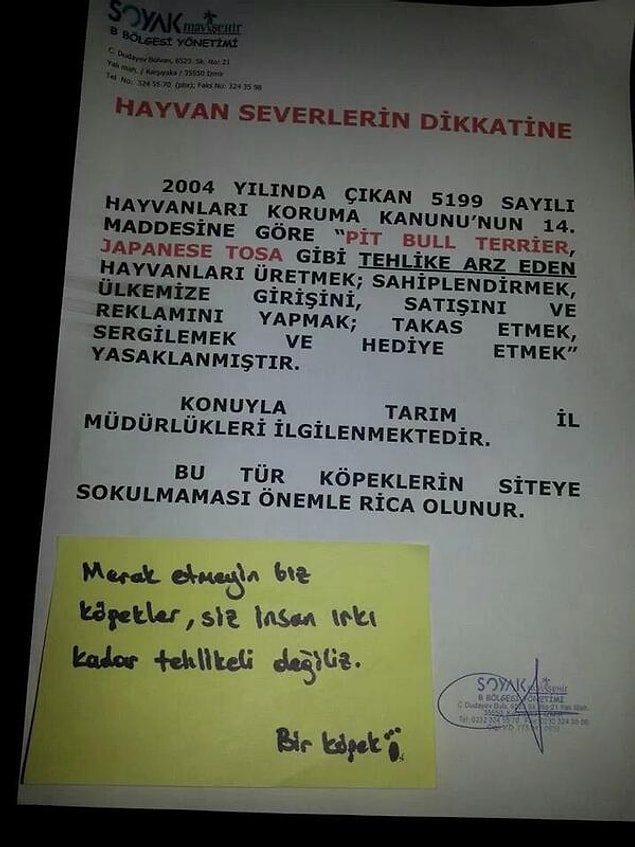 SOYAK mavişehir
B BÖLGESİ YÖNETİMİ
C. Dudayev Bulvarı, 6523. Sk. No: 21
Yalı Mah. / Karşıyaka / 35550 İzmir
Tel No: 324 55 70 (pbx); Faks No: 324 35 98
HAYVAN SEVERLERİN DİKKATİNE
2004 YILINDA ÇIKAN 5199 SAYILI
HAYVANLARI KORUMA KANUNU'NUN 14.
MADDESİNE GÖRE "PİT BULL TERRİER,
JAPANESE TOSA GİBİ TEHLİKE ARZ EDEN
HAYVANLARI ÜRETMEK; SAHİPLENDİRMEK,
ÜLKEMİZE GİRİŞİNİ, SATIŞINI VE
REKLAMINI YAPMAK; TAKAS ETMEK,
SERGİLEMEK VE HEDİYE ETMEK"
YASAKLANMIŞTIR.
KONUYLA TARIM İL
MÜDÜRLÜKLERİ İLGİLENMEKTEDİR.
BU TÜR KÖPEKLERİN SİTEYE
SOKULMAMASI ÖNEMLE RİCA OLUNUR.
Merak etmeyin biz
köpekler, siz insan ırkı
kadar tehlikeli değiliz.
Bir köpek
SOYAK mavişehir
B BÖLGESİ YÖNETİMİ